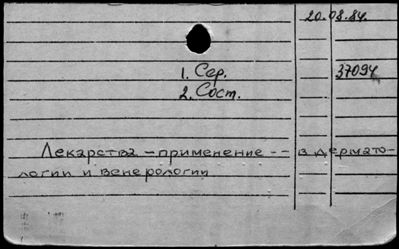 20.08.84.
1. Сер. 37094
2. Сост.
Лекарства – применение -- в дермато-
логии и венерологии